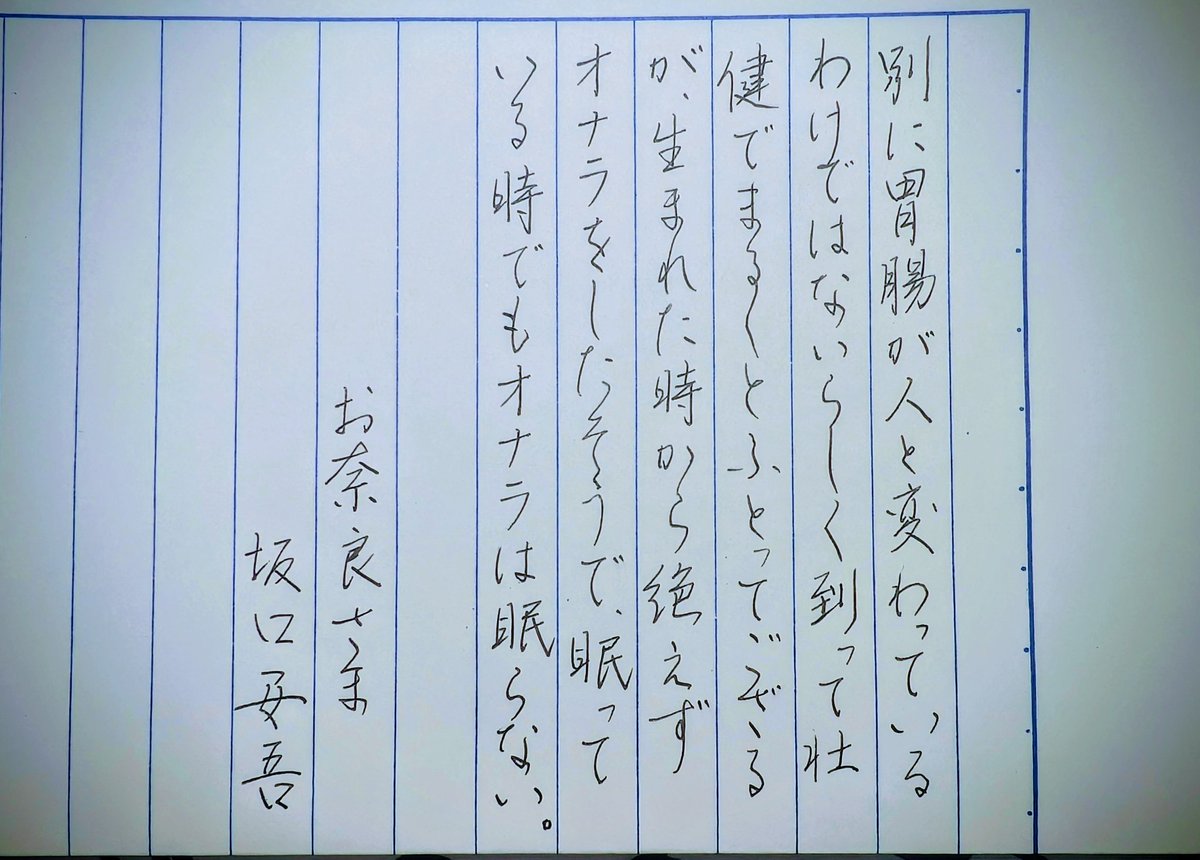 別に胃腸が人と変わっている
わけではないらしく到って壮
健でまるくとふとってござる
が、生まれた時から絶えず
オナラをしたそうで、眠って
いる時でもオナラは眠らない。
お奈良さま
坂口安吾